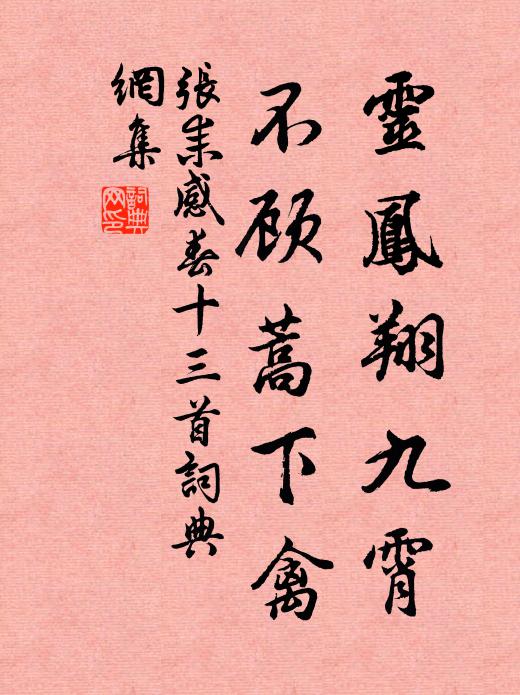 靈鳳翔九霄
不顾蒿下禽
張耒感春十三首詞典
網集
詞典
网印